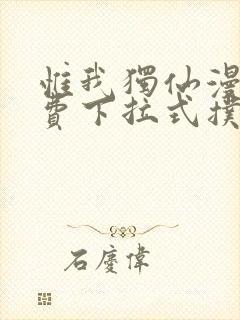 惟我獨仙漫
費下拉式撲
石慶偉